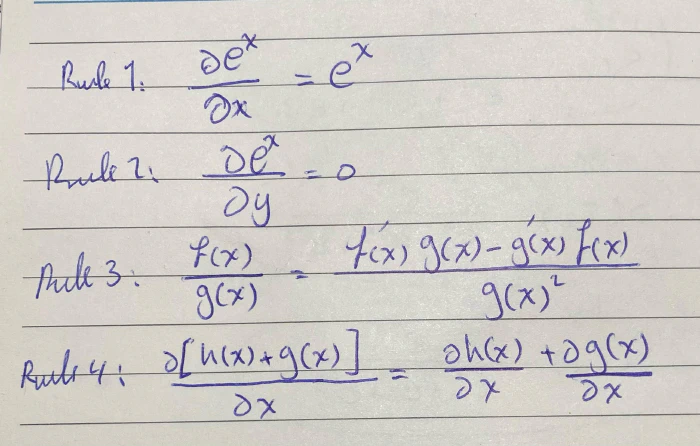 Rule 1: ∂e^x/∂x = e^x
Rule 2: ∂e^x/∂y = 0
Rule 3: f(x)/g(x) = f′(x) g(x) − g′(x) f(x)/g(x)²
Rule 4: ∂[h(x)+g(x)]/∂x = ∂h(x)/∂x + ∂g(x)/∂x